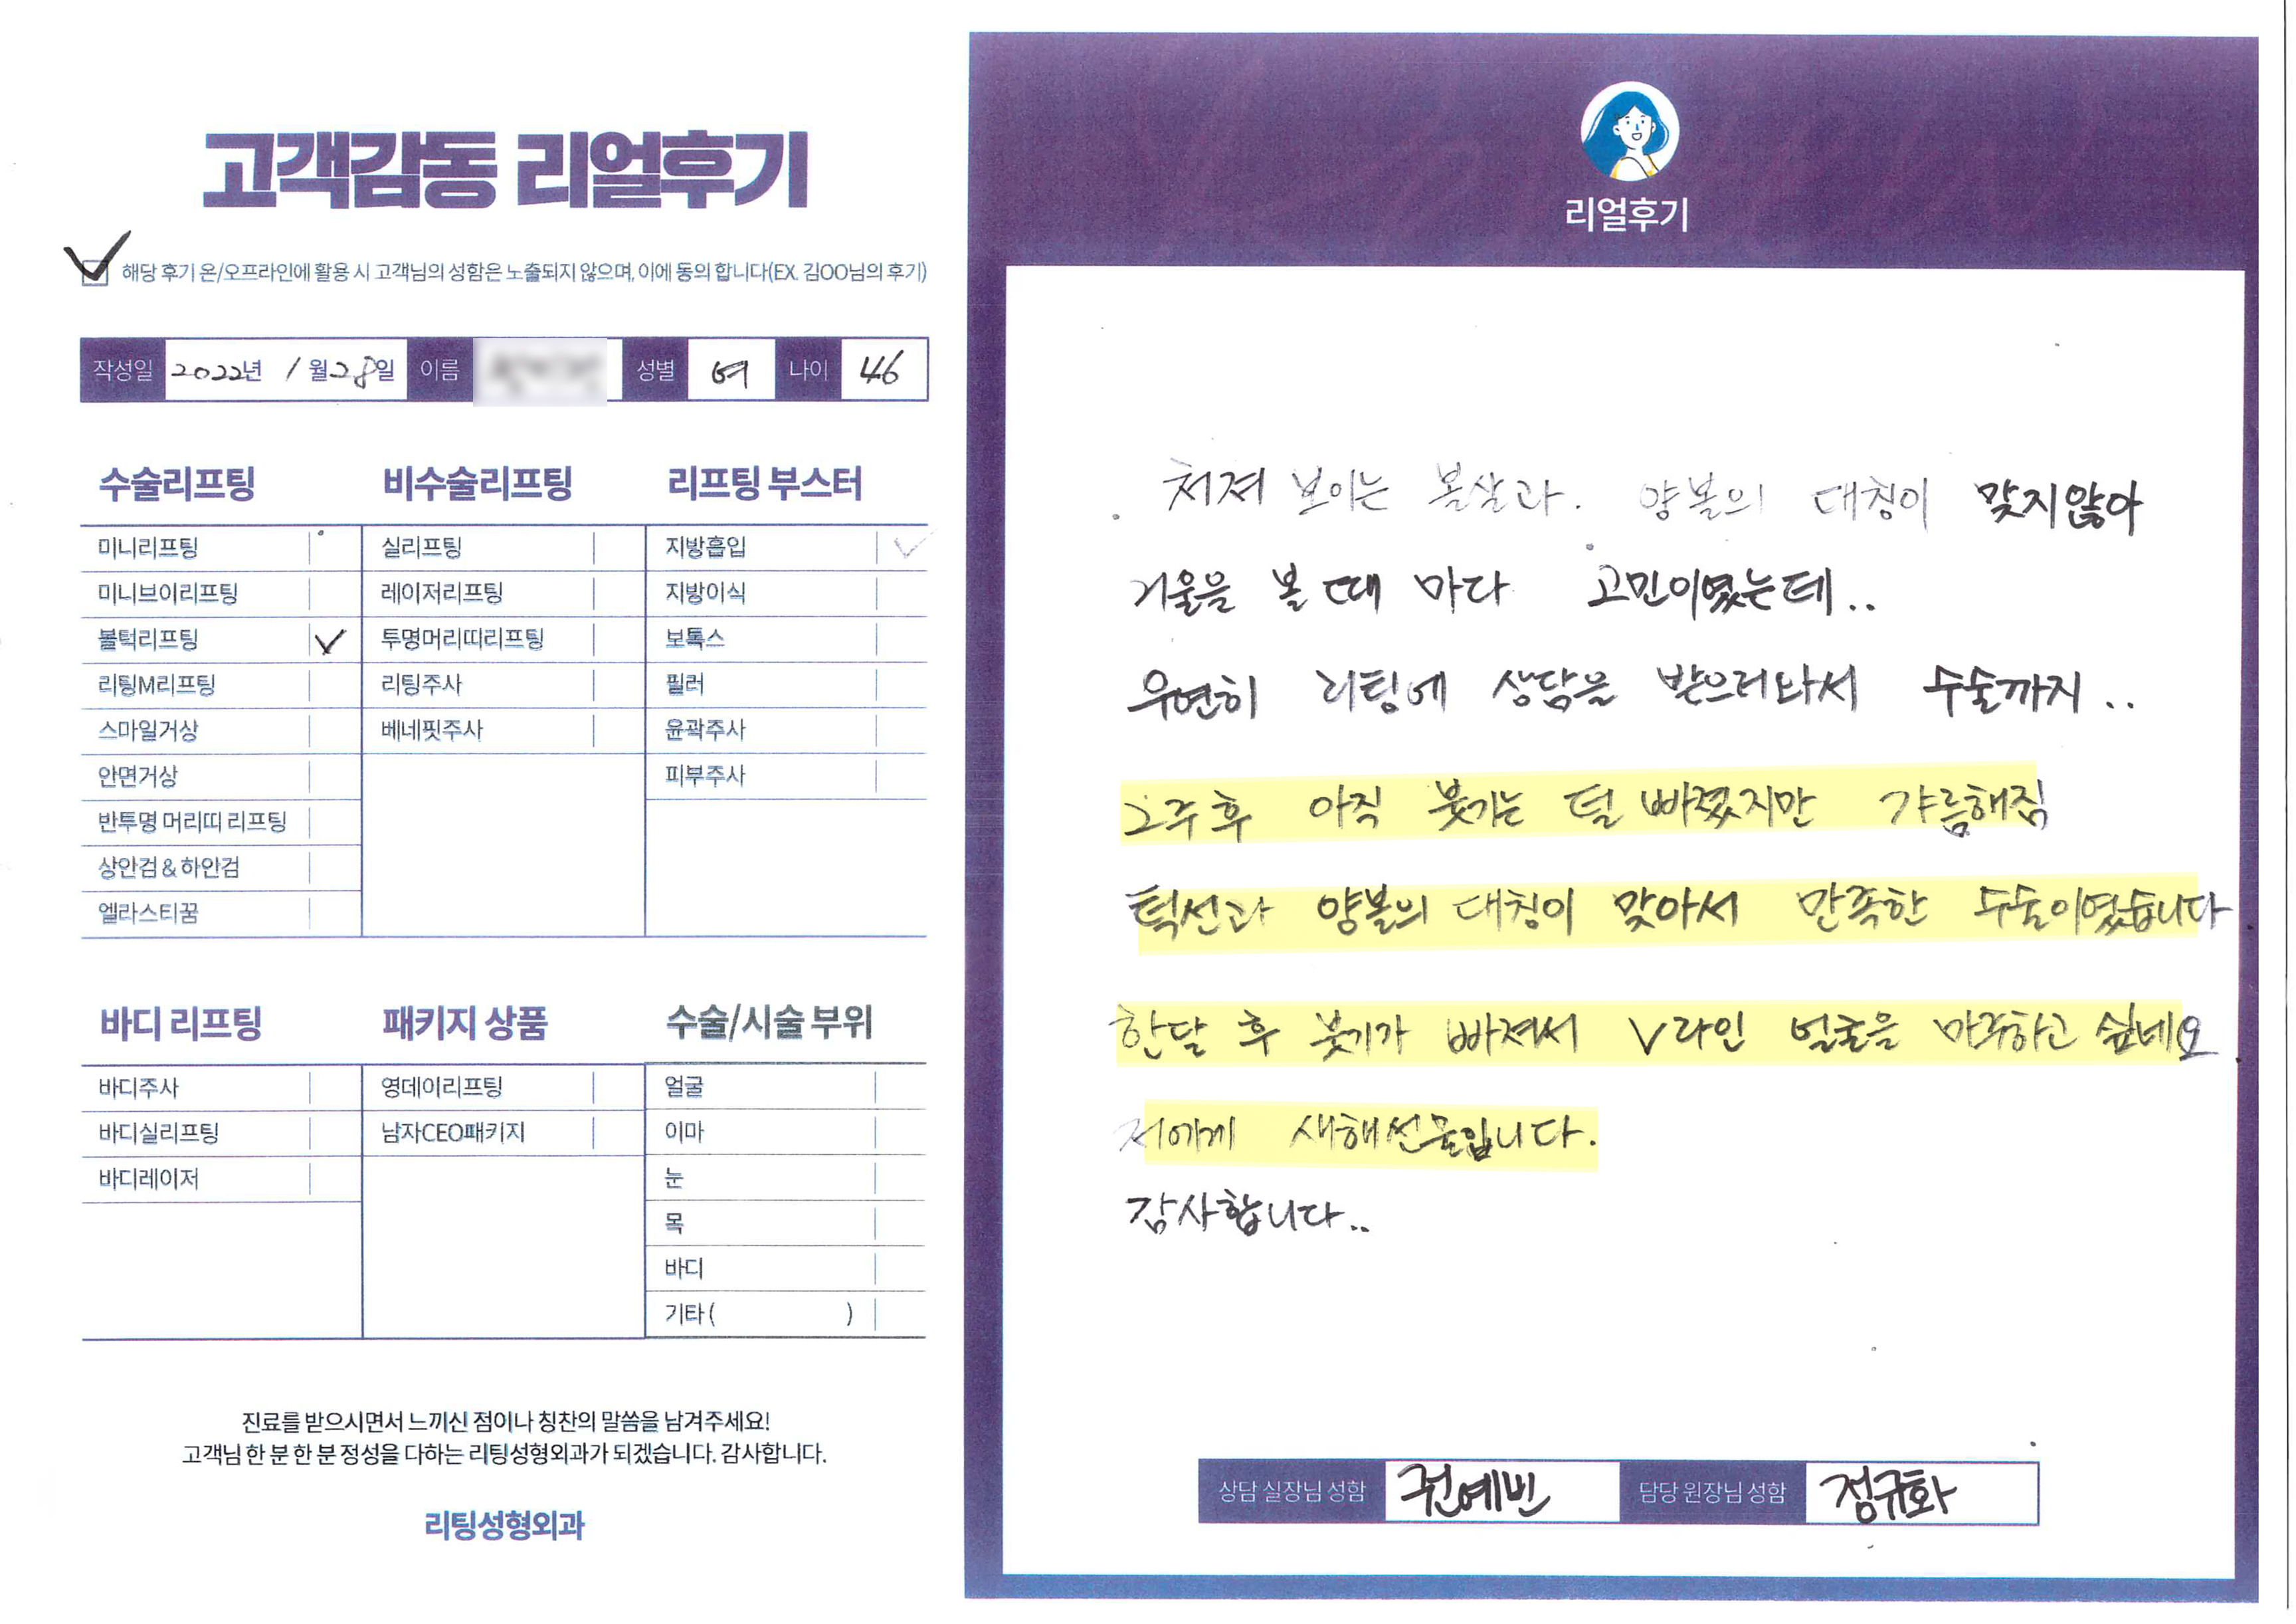 고객감동 리얼후기
해당 후기 온/오프라인에 활용 시 고객님의 성함은 노출되지 않으며, 이에 동의 합니다(EX. 김OO님의 후기)
작성일 2022년 1월 28일 이름 성별 여 나이 46
수술리프팅
미니리프팅
미니브이리프팅
볼턱리프팅 ✓
리팅M리프팅
스마일거상
안면거상
반투명 머리띠 리프팅
상안검 & 하안검
엘라스티꿈
비수술리프팅
실리프팅
레이저리프팅
투명머리띠리프팅
리팅주사
베네핏주사
리프팅 부스터
지방흡입 ✓
지방이식
보톡스
필러
윤곽주사
피부주사
바디 리프팅
바디주사
바디실리프팅
바디레이저
패키지 상품
영데이리프팅
남자CEO패키지
수술/시술 부위
얼굴
이마
눈
목
바디
기타 ( )
진료를 받으시면서 느끼신 점이나 칭찬의 말씀을 남겨주세요!
고객님 한 분 한 분 정성을 다하는 리팅성형외과가 되겠습니다. 감사합니다.
리팅성형외과
리얼후기
처져 보이는 볼살과. 양볼의 대칭이 맞지않아
거울을 볼 때 마다 고민이였는데..
우연히 리팅에 상담을 받으러와서 수술까지..
2주후 아직 붓기는 덜 빠졌지만 갸름해짐
턱선과 양볼의 대칭이 맞아서 만족한 수술이였습니다
한달 후 붓기가 빠져서 V라인 얼굴을 마주하고 싶네요
저에게 새해선물입니다.
감사합니다..
상담 실장님 성함 권예빈 담당 원장님 성함 정규화